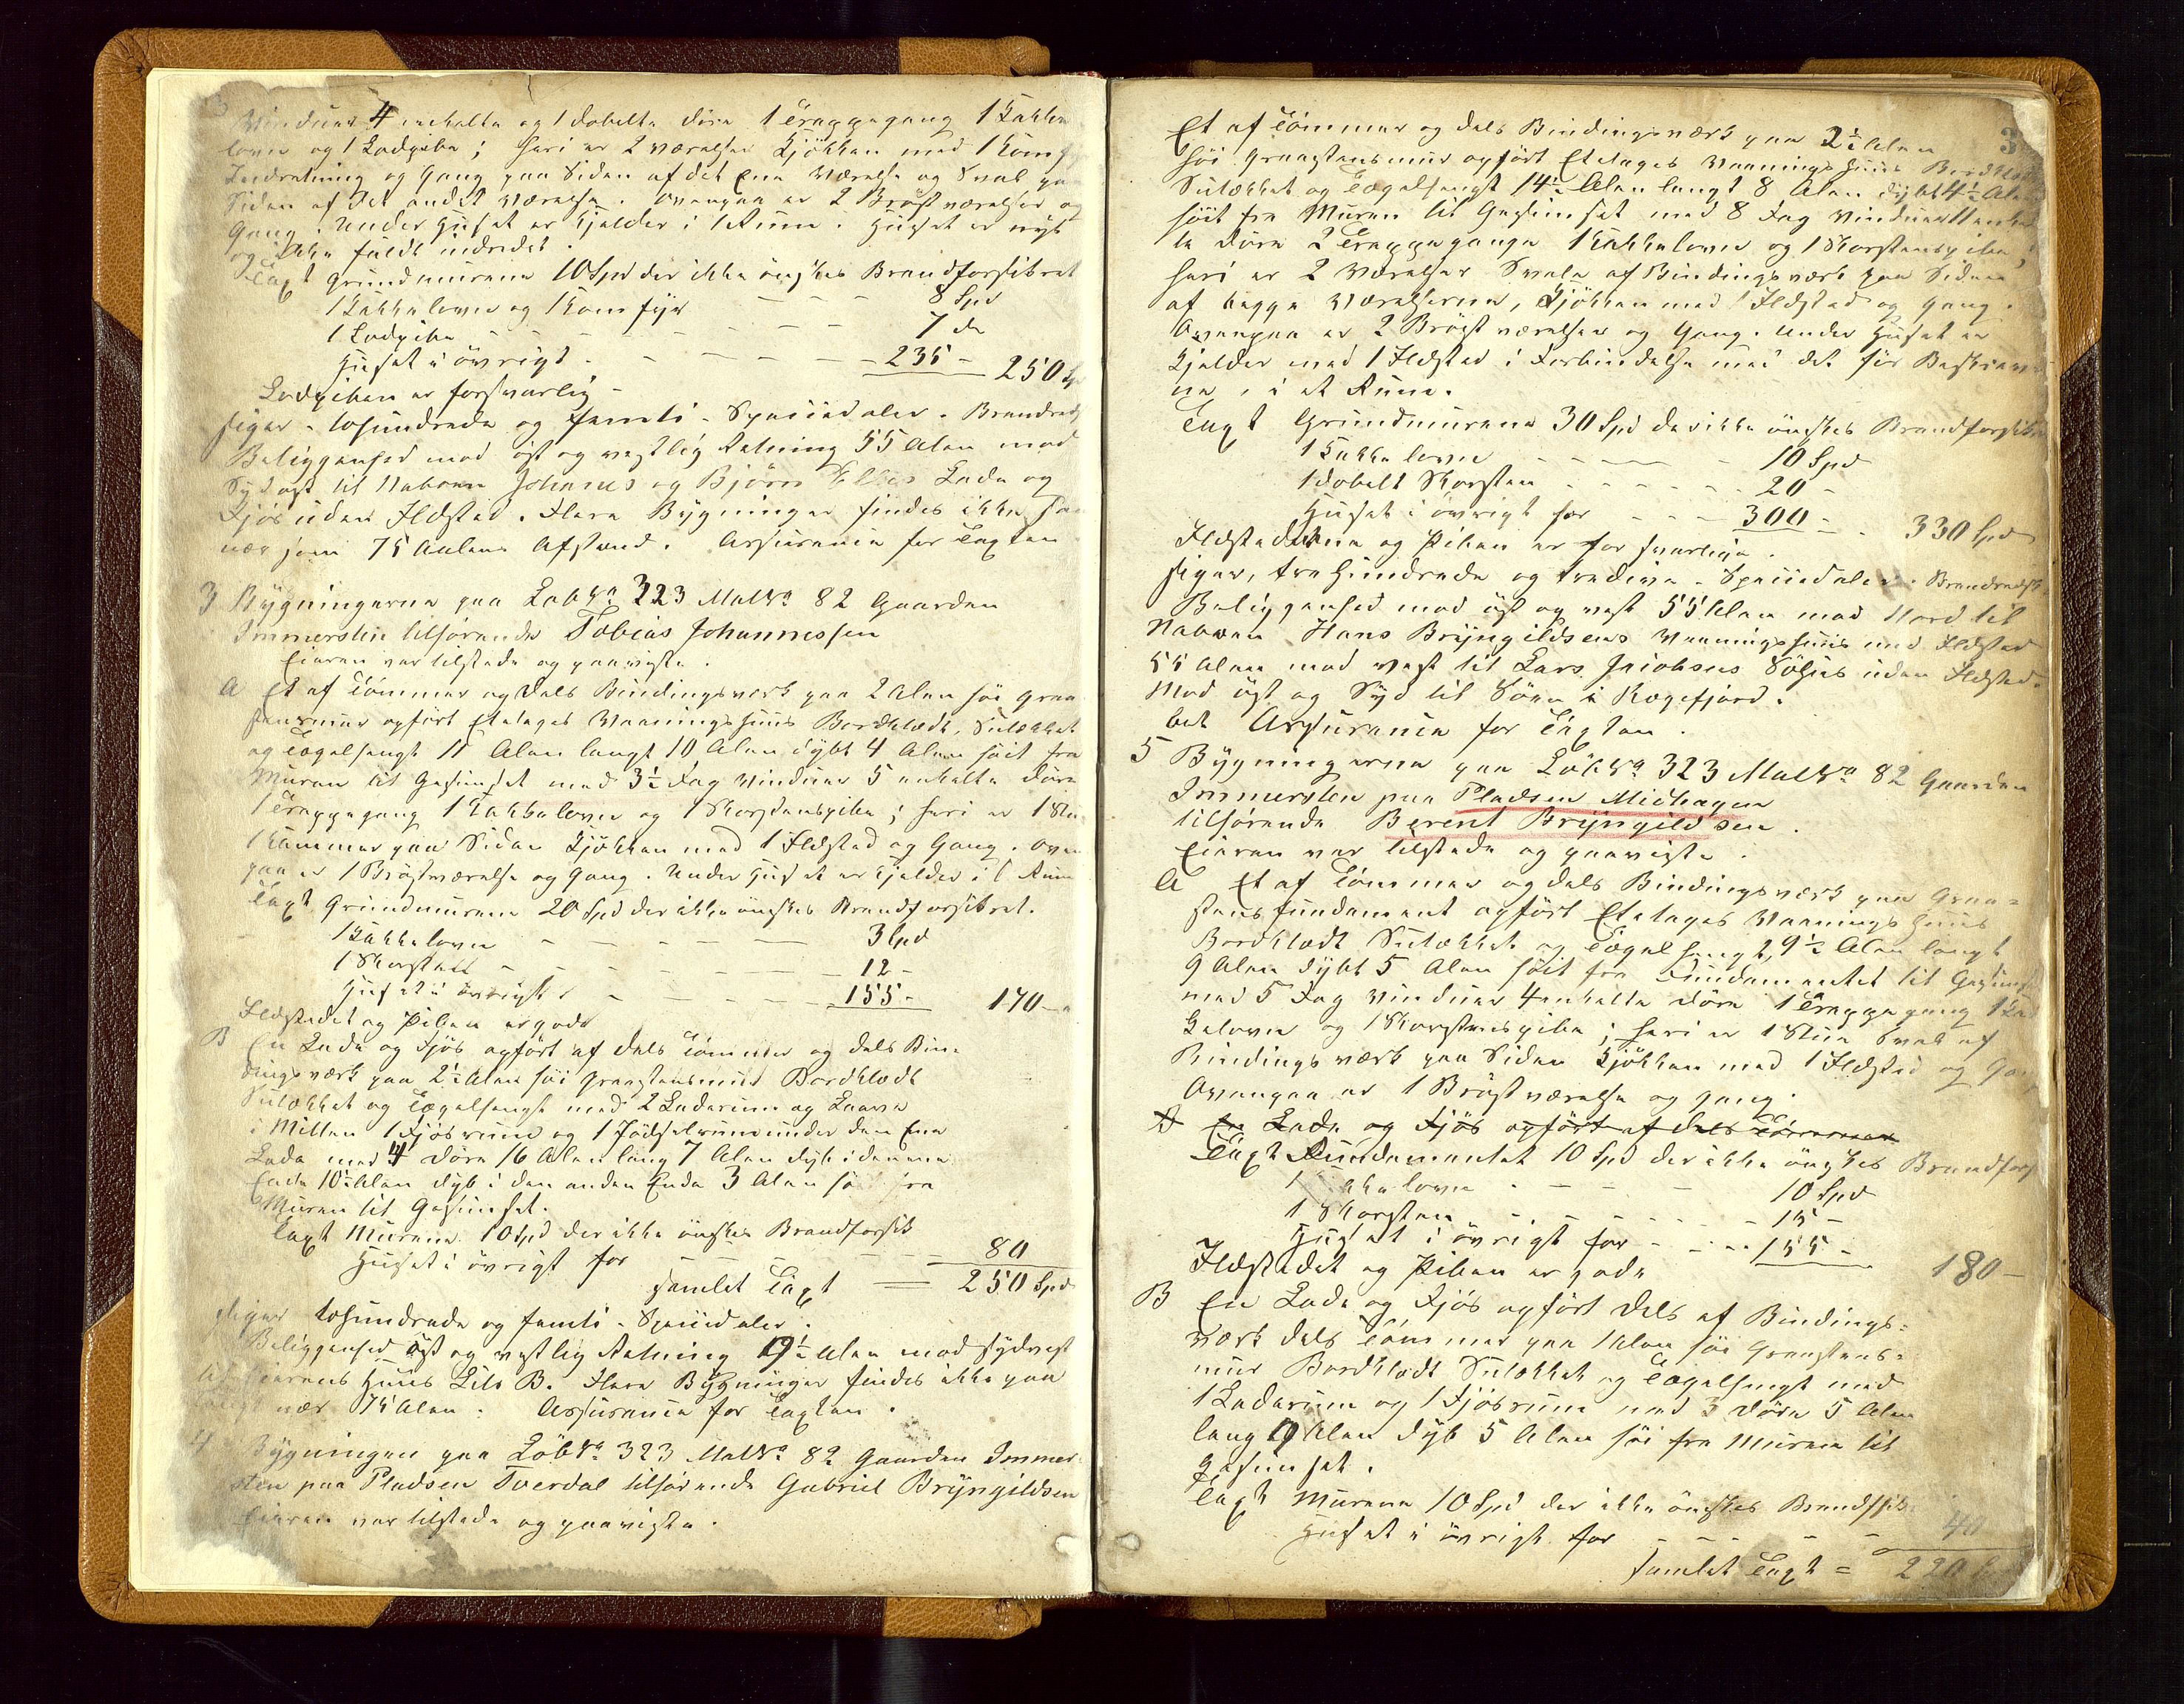 Vinduer 4 enkelte og 1 dobelte Döre 1 Trappegang 1 Kakkel
lovn og 1 Lodpibe; heri er 2 Værelser Kjökken med 1 Komf
Indretning og Gang paa Siden af det Ene Værelse og Sval paa
Siden af det andet Værelse. Ovenpaa er 2 Bröstværelser og
Gang. Under Huset er Kjelder i 1 Rum. Huset er nyt
og ikke fuldt indredet.
Taxt Grundmurene 10 Spd der ikke önskes Brandforsikret
1 Kakkelovn og 1 Komfyr - - - 8 Spd
1 Lodpibe - - - - 7 do
Huset i övrigt - - - - 235 - 250 Sp
Lodpiben er forsvarlig -
siger - tohundrede og femti - Speciedaler. Brandreds
Beliggenhed mod öst og vestlig Retning 55 Alen mod
Sydost til Naboen Johanes og Björn Lade og
Fjös uden Ildsted. Flere Bygninger findes ikke saa
nær som 75 Alens Afstand. Assurance for Taxten
3 Bygningerne paa LobNo 323 MatNo 82 Gaarden
Immersten tilhörende Tobias Johannessen
Eieren var tilstede og paaviste.
A Et af Tömmer og dels Bindingsværk paa 2 Alen höi Graa
steensmur opfört Etetages Vaaningshuus Bordklædt, Sutækket
og Tægelhængt 11 Alen langt 10 Alen dybt 4 Alen höit fra
Muren til Gesimset med 3½ Fag Vinduer 5 enkelte Döre
1 Trappegang 1 Kakkelovn og 1 Skorstenspibe; heri er 1 Stue
1 Kammer paa Siden Kjökken med 1 Ildsted og Gang. Oven
paa er 1 Bröstværelse og Gang. Under Huset er Kjelder i 1 Rum
Taxt Grundmurene 20 Spd der ikke önskes Brandforsikret.
1 Kakkelovn - - - - 3 Spd
1 Skorsten - - - - - 12 -
Huset i övrigt - - - - 155 - 170 -
Ildstedet og Piben er gode
B En Lade og Fjös opfört af dels Tömmer og dels Bin-
dingsværk paa 2½ Alen höi Graastensmur Bordklædt
Sutækket og Tægelhængt med 2 Laderum og Laave
i Mitten 1 Fjösrum og 1 Födselrum under den Ene
Lade med 4 Döre 16 Alen lang 7 Alen dyb i den ene
Ende 10½ Alen dyb i den anden Ende 3 Alen höi fra
Muren til Gesimset.
Taxt Murene 10 Spd der ikke önskes Brandforsik
Huset i övrigt for - - - - 80
samlet Taxt = 250 Spd
siger tohundrede og femti - Speciedaler.
Beliggenhed öst og vestlig Retning 9½ Alen mod sydvest
til Eierens Huus Litr B. Flere Bygninger findes ikke paa
nær 75 Alen. Assurance for Taxten.
4 Bygningen paa LöbNo 323 MatNo 82 Gaarden Immer
sten paa Pladsen Tverdal tilhörende Gabriel Bryngildsen
Eieren var tilstede og paaviste.
3
Et af Tömmer og dels Bindingsværk paa 2½ Alen
höi Graastensmur opfört Etetages Vaaningshuus Bordklædt
Sutækket og Tægelhængt 14½ Alen langt 8 Alen dybt 4½ Alen
höit fra Muren til Gesimset med 8 Fag Vinduer 11 enkel
te Döre 2 Trappegange 1 Kakkelovn og 1 Skorstenspibe;
heri er 2 Værelser Svale af Bindingsværk paa Siden
af begge Værelserne, Kjökken med 1 Ildsted og Gang.
Ovenpaa er 2 Bröstværelser og Gang. Under Huset er
Kjelder med 1 Ildsted i Forbindelse med det för Beskrev
ne, i et Rum.
Taxt Grundmurene 30 Spd der ikke önskes Brandforsik
1 Kakkelovn - - - - 10 Spd
1 dobelt Skorsten - - - - - 20 -
Huset i övrigt for - - - 300 - 330 Spd
Ildstederne og Piben er forsvarlige.
siger, trehundrede og tredive - Speciedaler. Brandredsk
Beliggenhed mod öst og vest 55 Alen mod Nord til
Naboen Hans Bryngildsens Vaaningshuus med Ildsted
55 Alen mod vest til Lars Jacobsens Söhus uden Ildsted.
Mod öst og Syd til Söen i Rægefjord.
Assurance for Taxten.
5 Bygningerne paa LöbNo 323 MatNo 82 Gaarden
Immersten paa Pladsen Midhagen
tilhörende Berent Bryngildsen.
Eieren var tilstede og paaviste.
A Et af Tömmer og dels Bindingsværk paa Graa-
stensfundament opfört Etetages Vaanings Huus
Bordklædt Sutækket og Tægelhængt, 9½ Alen langt
9 Alen dybt 5 Alen höit fra Fundamentet til Gesimset
med 5 Fag Vinduer 4 enkelte Döre 1 Trappegang 1 Kak
kelovn og 1 Skorstenspibe; heri er 1 Stue Sval af
Bindingsværk paa Siden Kjökken med 1 Ildsted og Gang
Ovenpaa er 1 Bröstværelse og gang.
B En Lade og Fjös opfört af dels Tömmer
Taxt Fundamentet 10 Spd der ikke önskes Brandfors
1 Kakkelovn - - - 10 Spd
1 Skorsten - - - - - 15 -
Huset i övrigt for - - - 155 - 180 -
Ildstedet og Piben er gode
B En Lade og Fjös opfört dels af Bindings-
værk dels Tömmer paa 1 Alen höi Graastens-
mur Bordklædt Sutækket og Tægelhængt med
1 Laderum og 1 Fjösrum med 3 Döre 5 Alen
lang 9 Alen dyb 5 Alen höi fra Murene til
Gesimset.
Taxt Murene 10 Spd der ikke önskes Brandfsik
Huset i övrigt for - - - - 40
samlet Taxt = 220